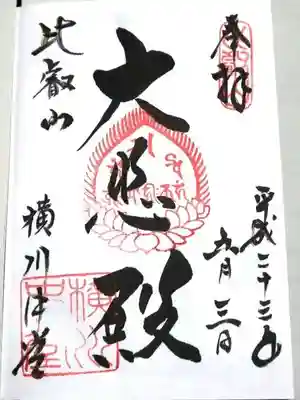 奉拝
平成二十三年
五月三日
大悲殿
比叡山
横川中堂
横川
中堂